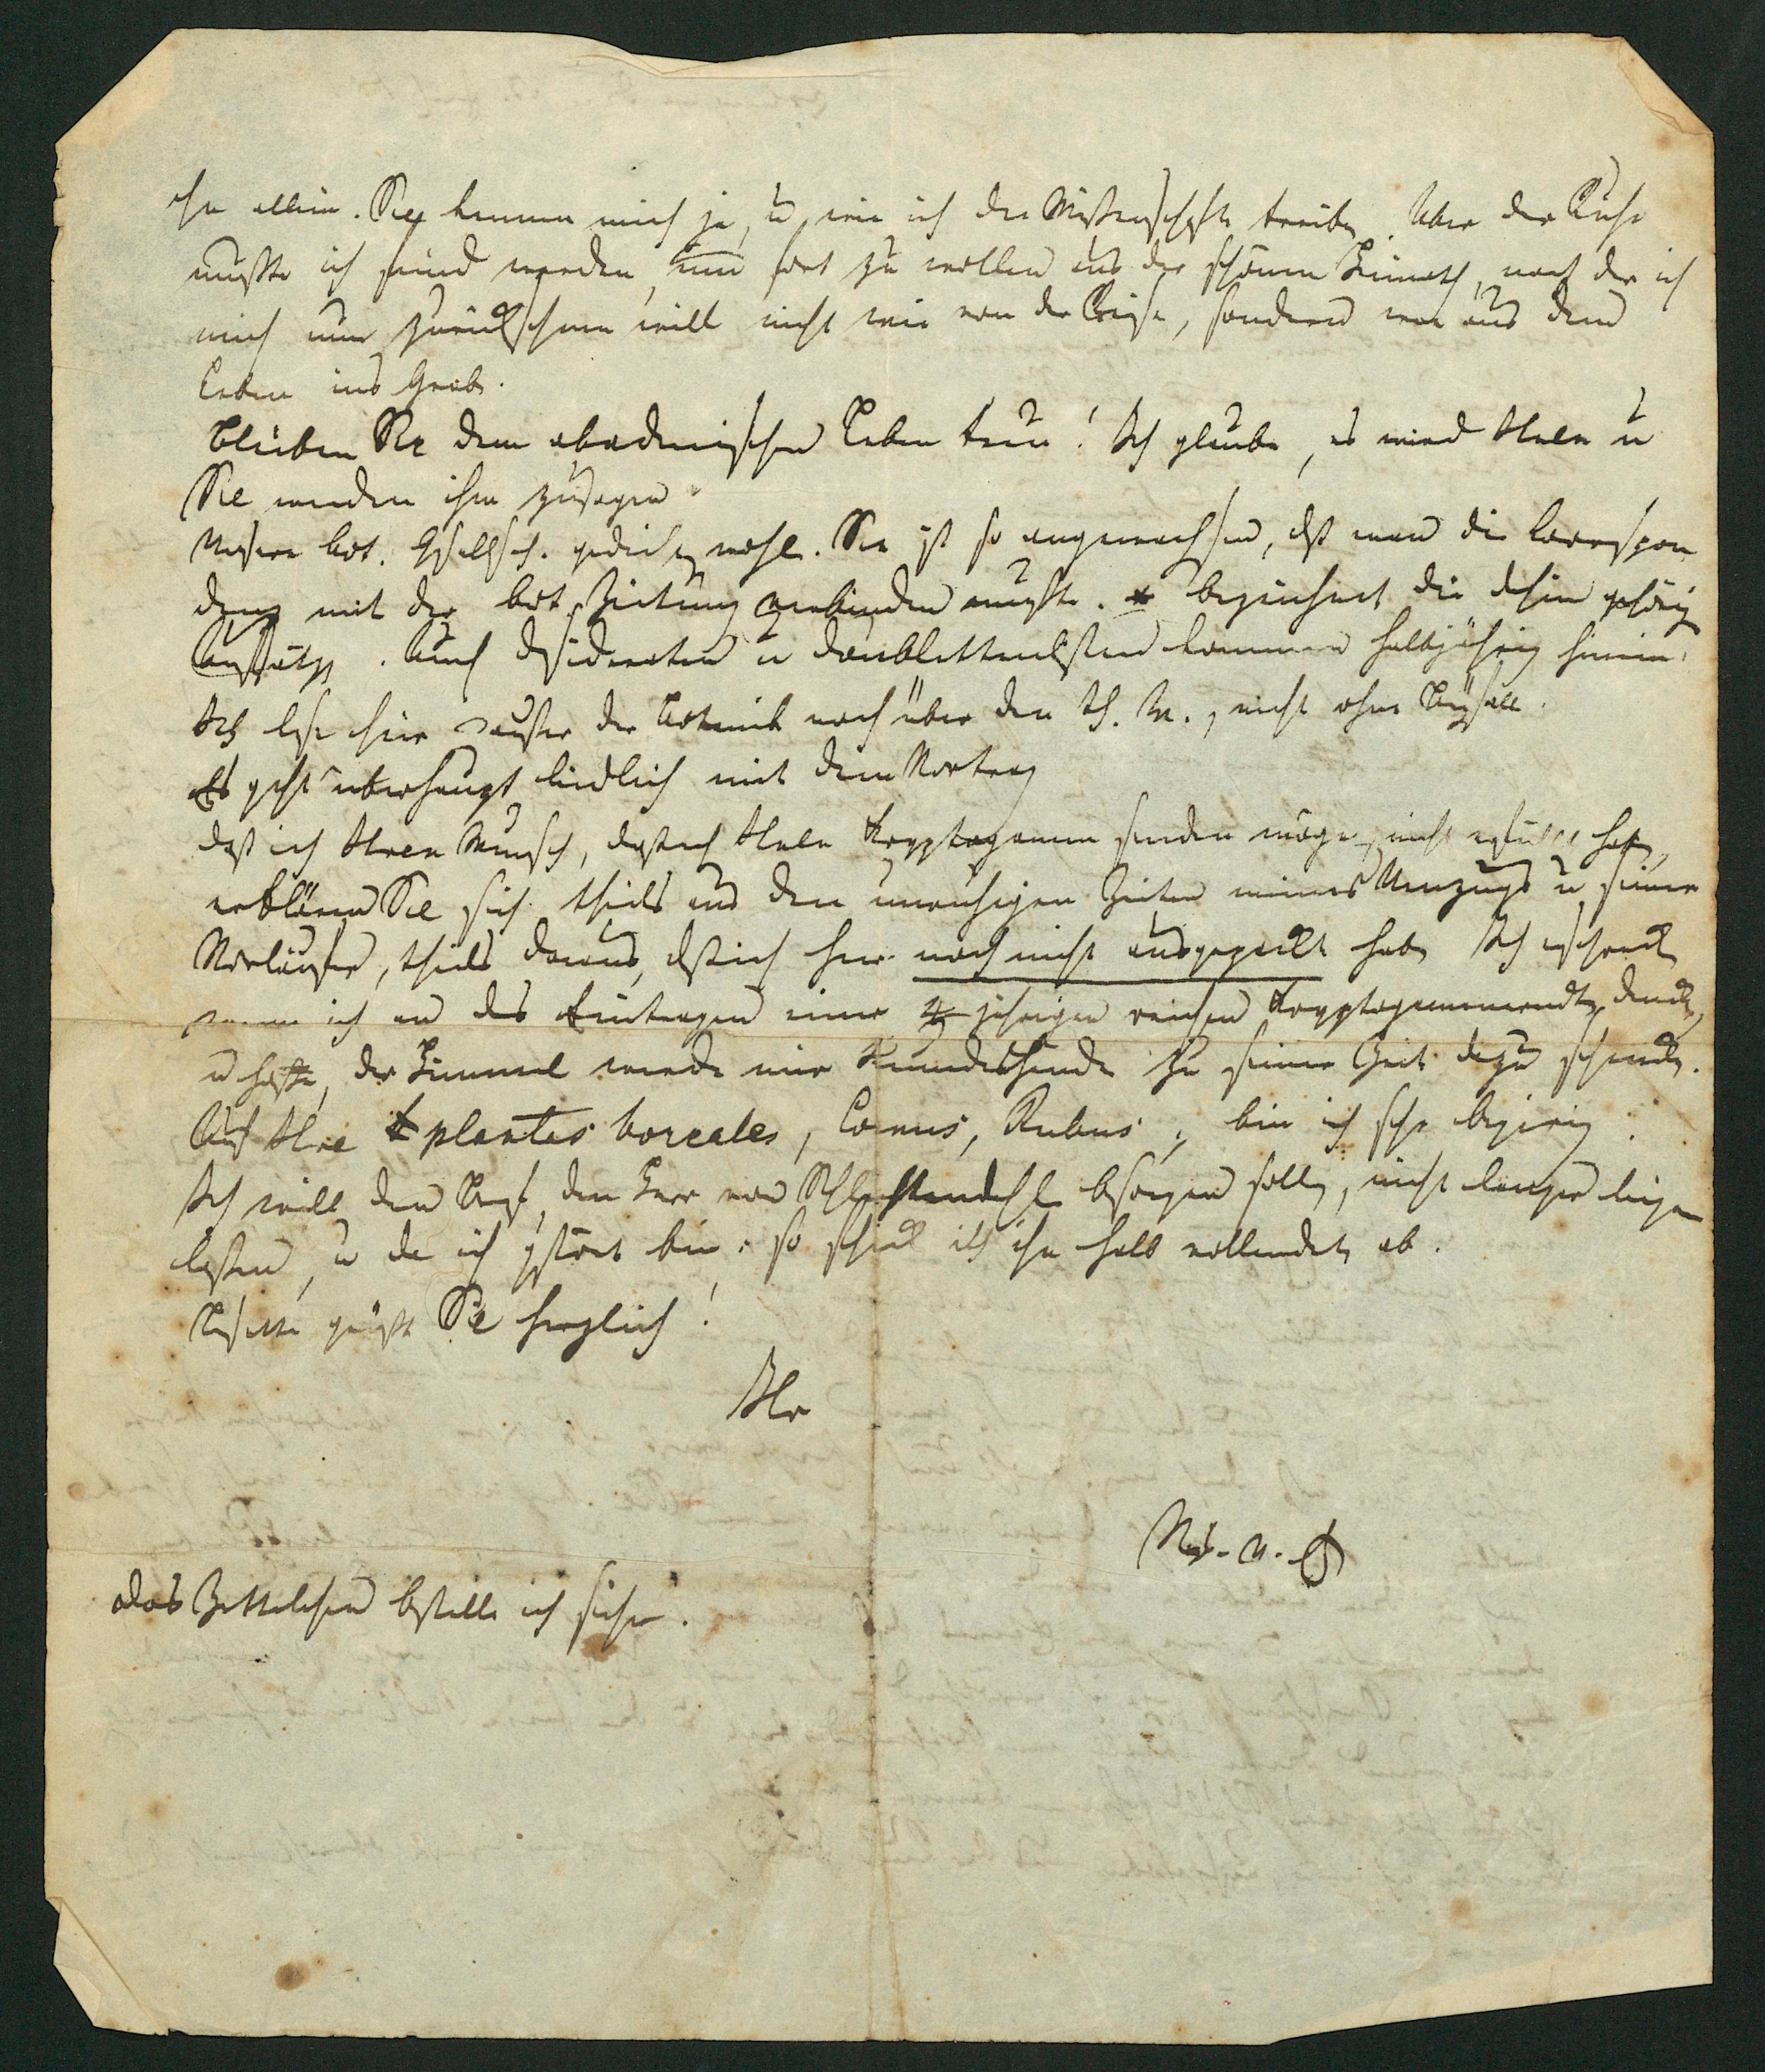 ihn allein. Sie kennen mich ja, u. wie ich die Wissenschaft treibe. Aber der Ruhe
mußte ich feind werden, um fort zu wollen aus der schönen Heimath, nach der ich
mich nun zurücksehnen will nicht wie von der Reise, sondern wie aus dem
Leben ins Grab.
Bleiben Sie dem akademischen Leben treu! Ich glaube, es wird Ihnen u
Sie werden ihm zusagen.
Unsere bot. Gesellsch. gedeiht wohl. Sie ist so angewachsen, daß man die Correspon
denz mit der bot. Zeitung verbinden mußte. * bezeichnet die dahin gehörig
Aufsätze. Auch Desideraten u Doublettenlisten kommen halbjährig hinein.
Ich lese hier außer der Botanik noch über den th. M., nicht ohne Beyfall.
Es geht überhaupt leidlich mit dem Vortrag
Daß ich Ihren Wunsch, daß ich Ihnen Kryptogamen senden möge, nicht erfüllt habe,
erklären Sie sich theils aus den unruhigen Zeiten meines Umzugs u seiner
Vorläufer, theils daraus, daß ich hier noch nicht ausgepackt habe. Ich erschrecke
wenn ich an das Eintragen einer 4 jährigen reichen Kryptogamenerndte denke,
u hoffe, der Himmel werde mir Hundeshände zu seiner Zeit dazu schenken.
Auf Ihre plantas boreales, Cornus, Rubus, bin ich sehr begierig.
Ich will den Brief, den Herr von Schlechtendahl besorgen soll, nicht länger liegen
lassen, u da ich gestört bin, so schick ich ihn halb vollendet ab.
Lisette grüßt Sie herzlich!
Ihr
N. v. E
Das Zettelchen bestelle ich sicher.